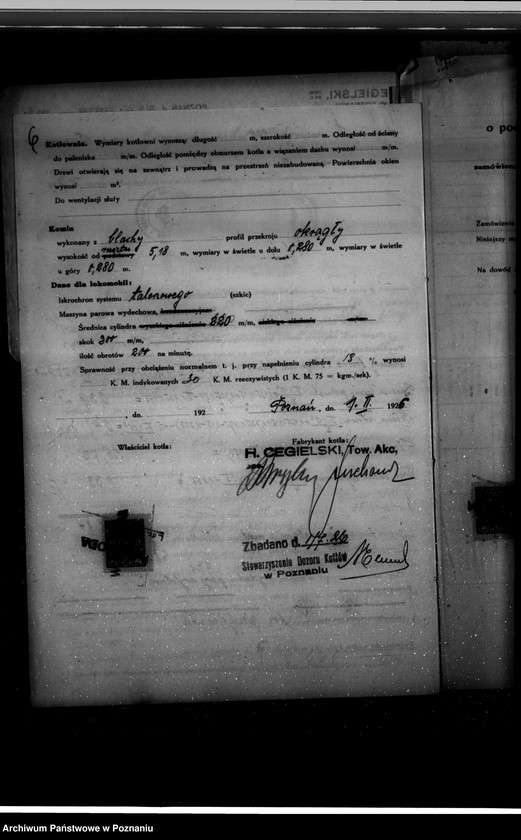 6
Kotłownia. Wymiary kotłowni wynoszą: długość m, szerokość m. Odległość od ściany
do paleniska m/m. Odległość pomiędzy obmurzem kotła a wiązaniem dachu wynosi m/m.
Drzwi otwierają się na zewnątrz i prowadzą na przestrzeń niezabudowaną. Powierzchnia okien
wynosi m².
Do wentylacji służy
Komin
wykonany z blachy profil przekroju okrągły
wysokość od podstawy 5,18 m, wymiary w świetle u dołu 0,280 m, wymiary w świetle
u góry 0,280 m.
Dane dla lokomobil:
Iskrochron systemu talerzowego (szkic)
Maszyna parowa wydechowa,
Średnica cylindra 220 m/m,
skok 300 m/m,
ilość obrotów 200 na minutę.
Sprawność przy obciążeniu normalnem t. j. przy napełnieniu cylindra 18 % wynosi
K. M. indykowanych 30 K. M. rzeczywistych (1 K. M. 75 = kgm./sek).
, dn. 192 Poznań, dn. 9. II. 1926
Właściciel kotła: Fabrykant kotła:
H. CEGIELSKI, Tow. Akc,
Zbadano d.
Stowarzyszenie Dozoru Kotłów
w Poznaniu
o po
zamówion
Zamówienie
Niniejszy
Na dowód
Archiwum Państwowe w Poznaniu